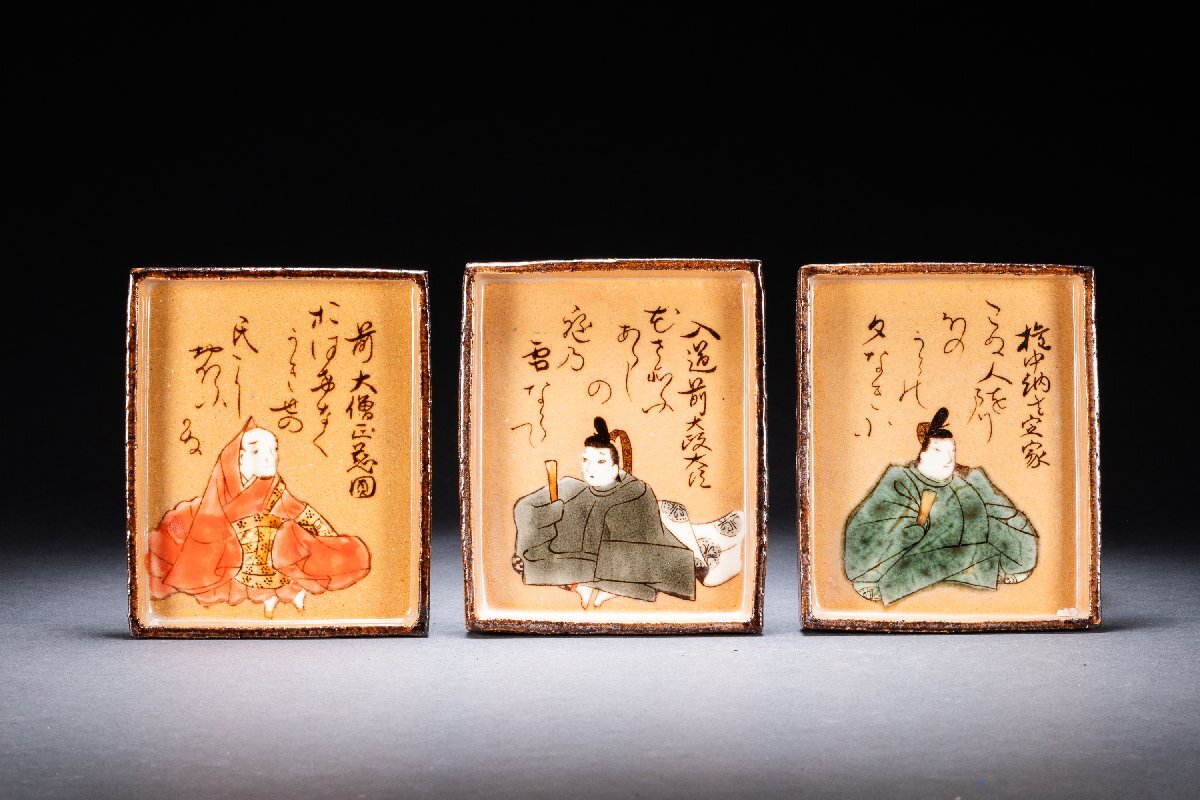 前大僧正慈圓
おほけなく
うき世の
民に
おほふ
入道前大政大臣
花さそふ
あらし
の
庭乃
雪ならて
権中納言定家
こぬ人を
まつ
ほの
うらの
夕なきに